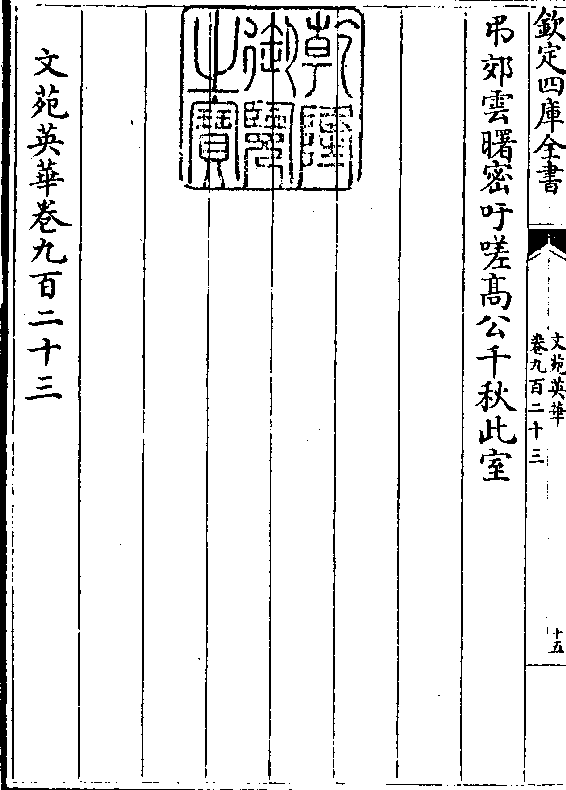 欽定四庫全書
文苑英華
卷九百二十三
十五
弔郊雲曙密吁嗟髙公千秋此室
乾隆
御覽
之寶
文苑英華卷九百二十三